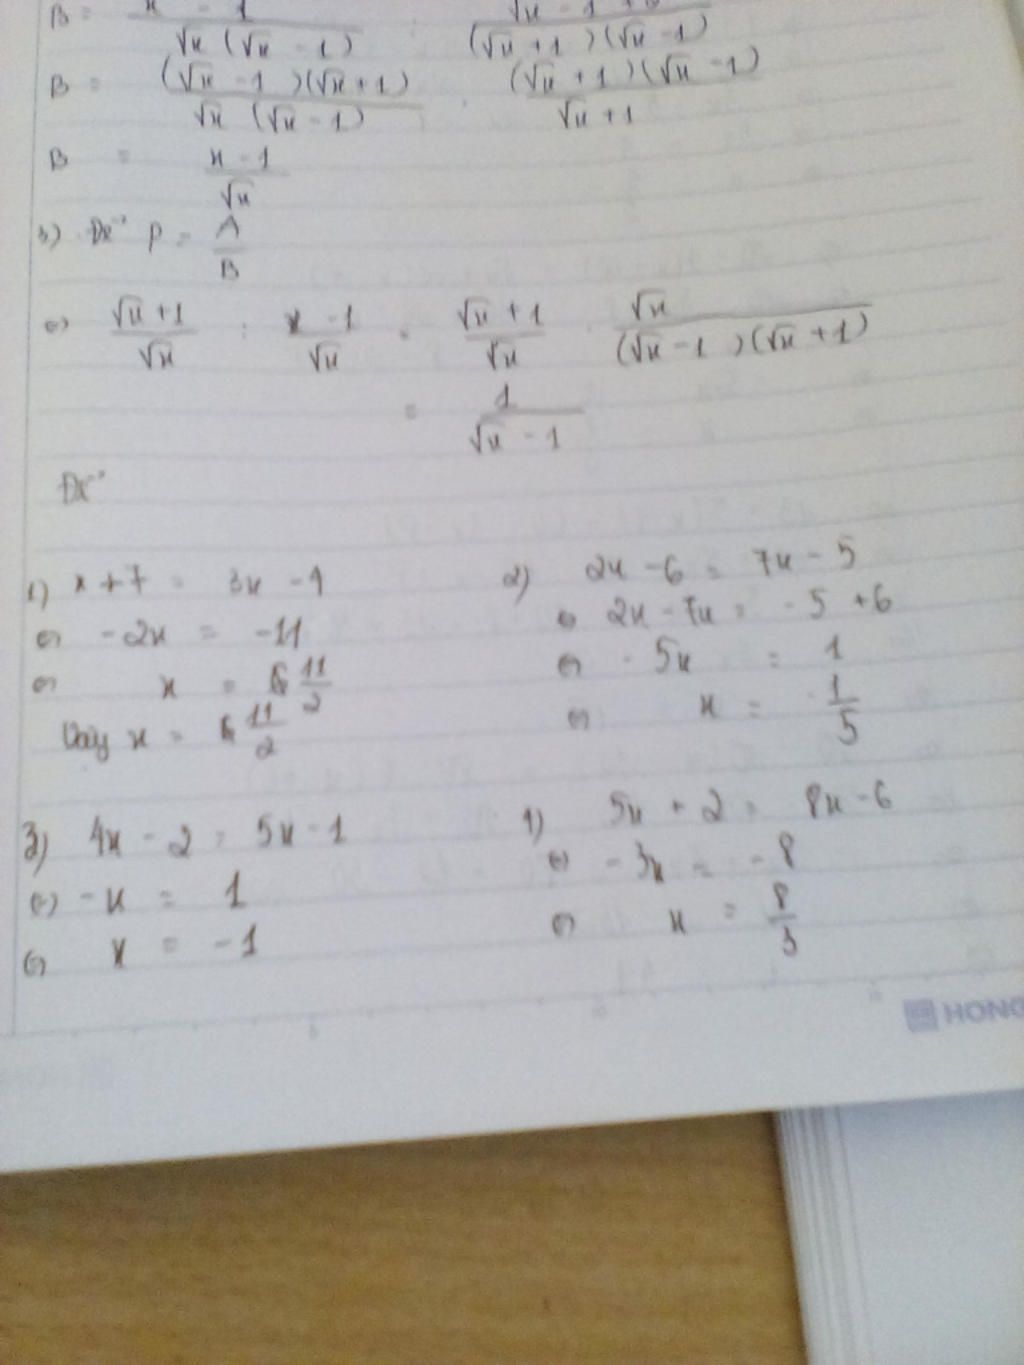 B = x - 1 / √x (√x - 1) : / (√x + 1)(√x - 1)
B = (√x - 1)(√x + 1) / √x (√x - 1) . (√x + 1)(√x - 1) / √x + 1
B = x - 1 / √x
3) Để P = A / B
⇔ √x + 1 / √x : x - 1 / √x = √x + 1 / √x . √x / (√x - 1)(√x + 1)
= 1 / √x - 1
Để
1) x + 7 = 3x - 4
⇔ -2x = -11
⇔ x = 11/2
Vậy x = 11/2
2) 2x - 6 = 7x - 5
⇔ 2x - 7x = -5 + 6
⇔ -5x = 1
⇔ x = -1/5
3) 4x - 2 = 5x - 1
⇔ -x = 1
⇔ x = -1
4) 5x + 2 = 8x - 6
⇔ -3x = -8
⇔ x = 8/3
HONG